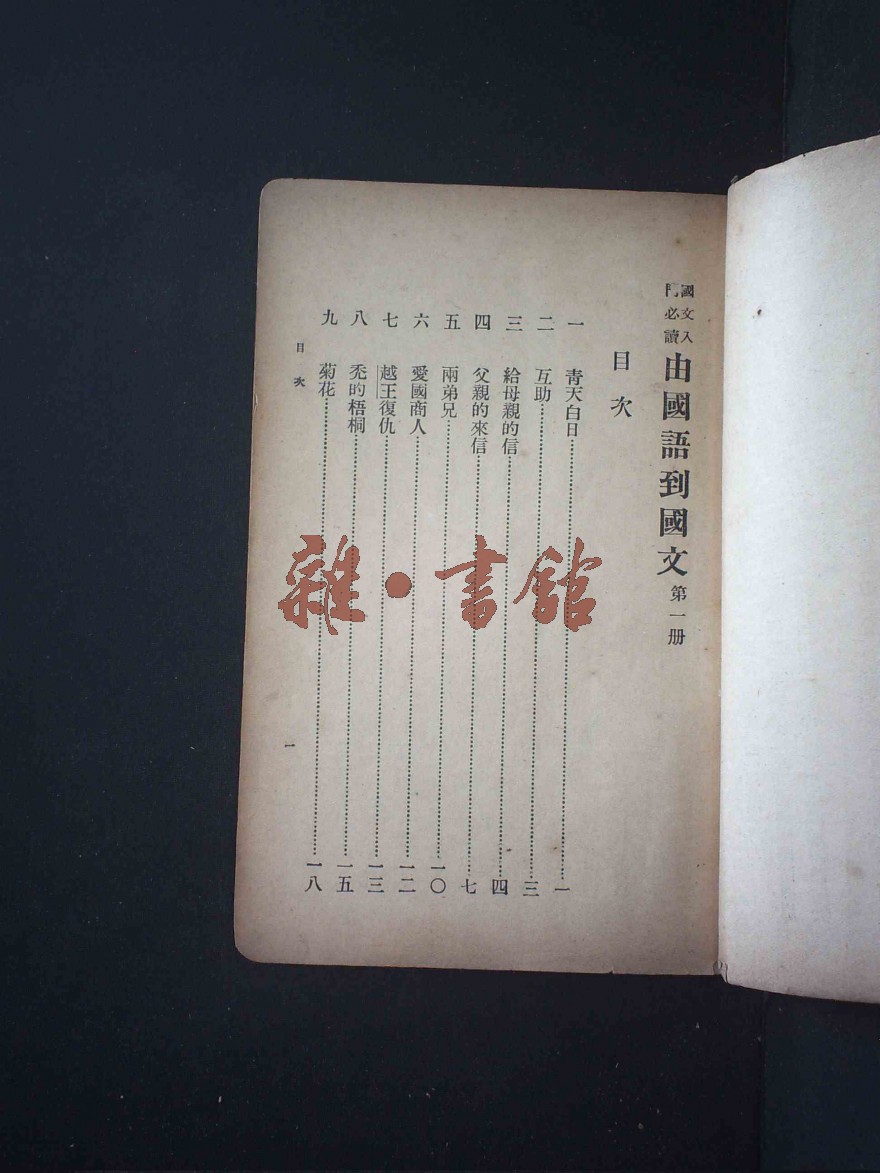 國文入門必讀 由國語到國文 第一册
目次
一 青天白日 一
二 互助 三
三 給母親的信 四
四 父親的來信 七
五 兩弟兄 一〇
六 愛國商人 一二
七 越王復仇 一三
八 禿的梧桐 一五
九 菊花 一八
目次 一
雜·書館